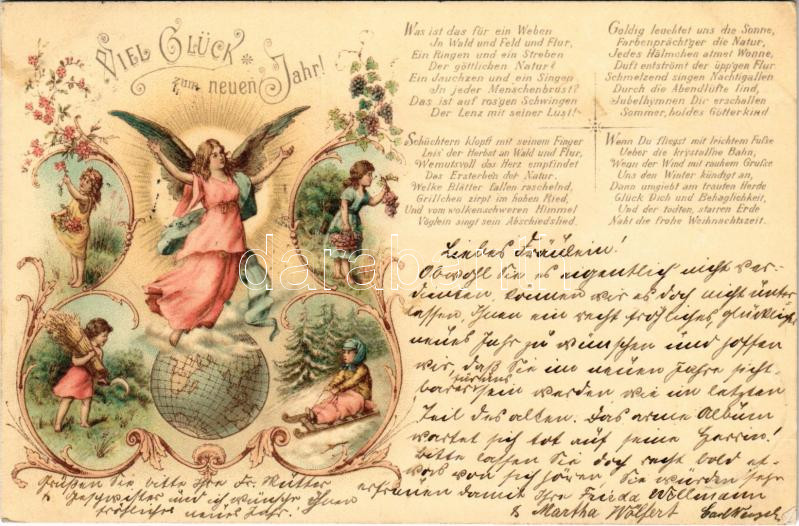 Viel Glück
zum neuen Jahr!
Was ist das für ein Weben
In Wald und Feld und Flur,
Ein Ringen und ein Streben
Der göttlichen Natur?
Ein Jauchzen und ein Singen
In jeder Menschenbrust?
Das ist auf ros'gen Schwingen
Der Lenz mit seiner Lust!
Goldig leuchtet uns die Sonne,
Farbenprächt'ger die Natur,
Jedes Hälmchen atmet Wonne,
Duft entströmt der üpp'gen Flur
Schmelzend singen Nachtigallen
Durch die Abendlüfte lind,
Jubelhymnen Dir erschallen
Sommer, holdes Götterkind
Schüchtern klopft mit seinem Finger
Leis' der Herbst an Wald und Flur,
Wemutsvoll das Herz empfindet
Das Ersterben der Natur.
Welke Blätter fallen raschelnd,
Grillchen zirpt im hohen Ried,
Und vom wolkenschweren Himmel
Vöglein singt sein Abschiedslied.
Wenn Du fliegst mit leichtem Fuße
Ueber die krystallne Bahn,
Wenn der Wind mit rauhem Gruße
Uns den Winter kündigt an,
Dann umgiebt am trauten Herde
Glück Dich und Behaglichkeit,
Und der todten, starren Erde
Naht die frohe Weihnachtszeit.
darabanth
Liebes Fräulein!
Obwohl Sie es eigentlich nicht ver-
dienten, können wir es doch nicht unter
lassen, Ihnen ein recht fröhliches, glückliches
neues Jahr zu wünschen und hoffen
wir, daß Sie im neuen Jahre sicht-
barer für uns sein werden, wie im letzten
Teil des alten. Das arme Album
wartet sich tot auf seine Herrin!
Bitte lassen Sie doch recht bald et-
was von sich hören, Sie würden sehr
erfreuen damit Ihre Frieda Willmann
& Martha Wölfert
Grüßen Sie bitte Ihre Fr. Mutter
& Geschwister und ich wünsche ihnen
fröhliches neues Jahr.